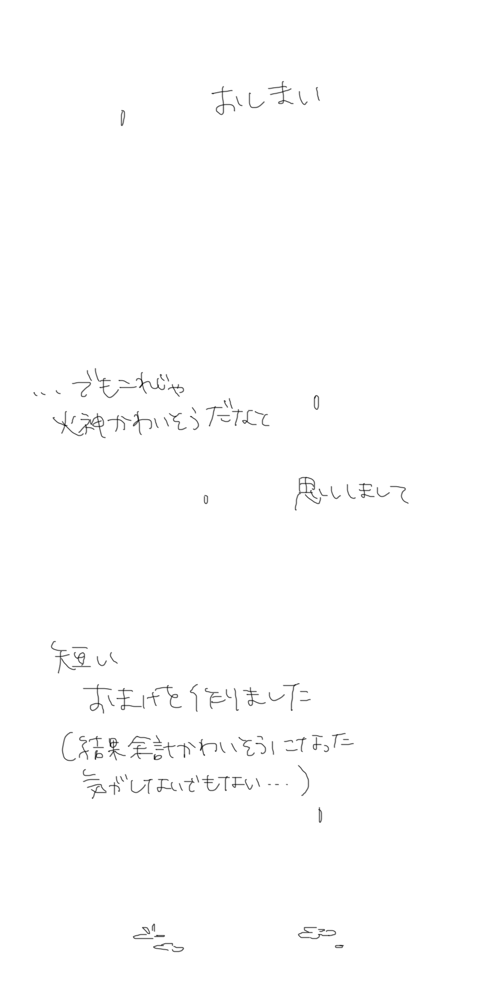 おしまい
...でもこれじゃ
火神かわいそうだなと
思いしまして
短い
おまけを作りました
(結果余計かわいそうになった
気がしないでもない...)